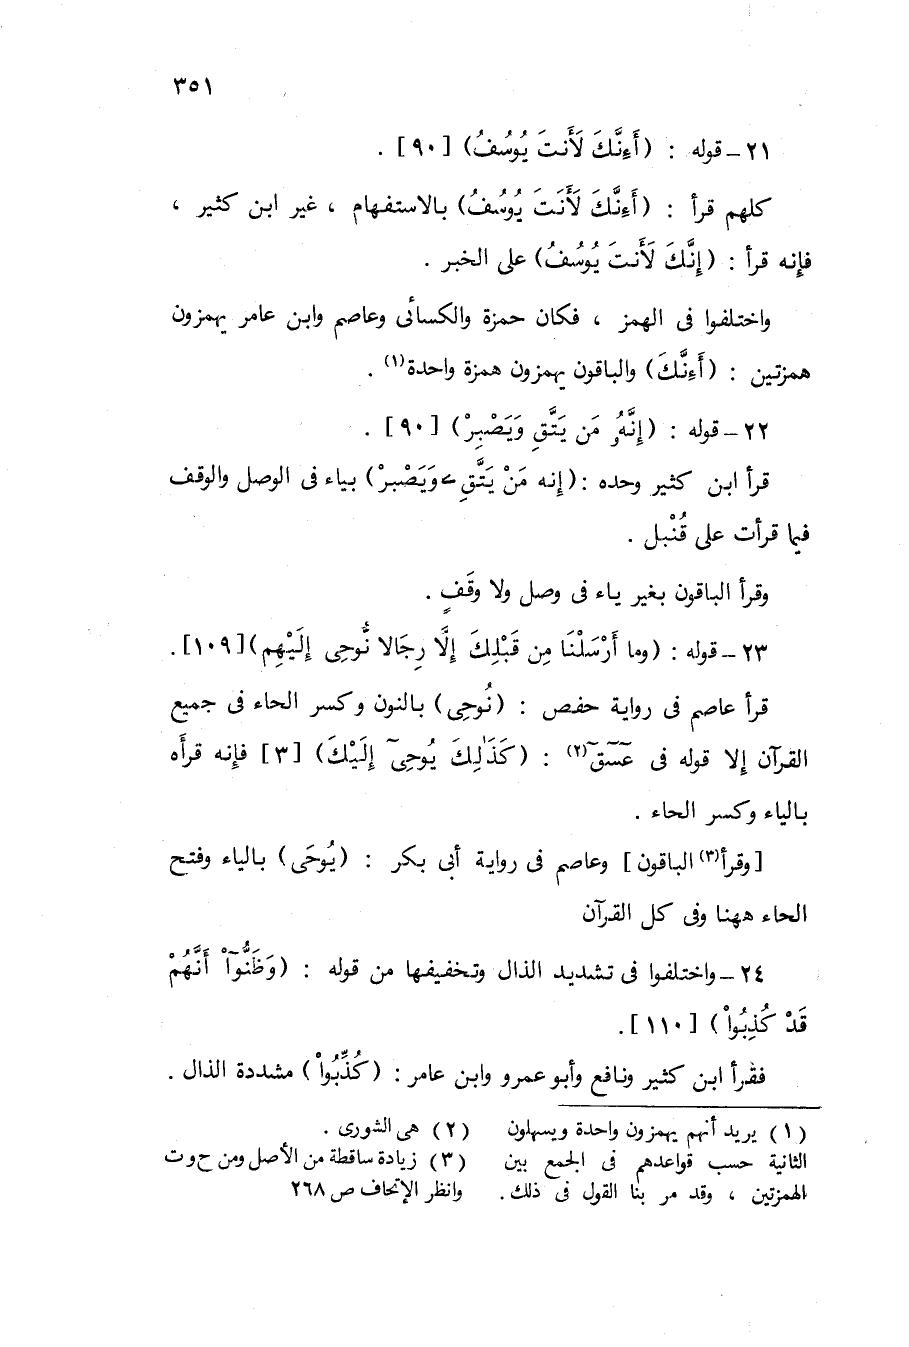 ٣٥١
٢١ – قوله : (أَءِنَّكَ لَأَنتَ يُوسُفُ) [٩٠] .
كلهم قرأ : (أَءِنَّكَ لَأَنتَ يُوسُفُ) بالاستفهام ، غير ابن كثير ،
فإنه قرأ : (إِنَّكَ لَأَنتَ يُوسُفُ) على الخبر .
واختلفوا فى الهمز ، فكان حمزة والكسائى وعاصم وابن عامر يهمزون
همزتين : (أَءِنَّكَ) والباقون يهمزون همزة واحدة(١) .
٢٢ – قوله : (إِنَّهُۥ مَن يَتَّقِ وَيَصْبِرْ) [٩٠] .
قرأ ابن كثير وحده : (إنه مَنْ يَتَّقِے وَيَصْبِرْ) بياء فى الوصل والوقف
فيما قرأت على قُنْبل .
وقرأ الباقون بغير ياء فى وصل ولا وقَفٍ .
٢٣ – قوله : (وما أَرْسَلْنَا مِن قَبْلِكَ إِلَّا رِجَالا نُّوحِى إِلَيْهِم) [١٠٩] .
قرأ عاصم فى رواية حفص : (نُوحِى) بالنون وكسر الحاء فى جميع
القرآن إلا قوله فى عٓسٓقٓ(٢) : (كَذَٰلِكَ يُوحِىٓ إِلَيْكَ) [٣] فإنه قرأه
بالياء وكسر الحاء .
[وقرأ(٣) الباقون] وعاصم فى رواية أبى بكر : (يُوحَى) بالياء وفتح
الحاء ههنا وفى كل القرآن
٢٤ – واختلفوا فى تشديد الذال وتخفيفها من قوله : (وَظَنُّوٓاْ أَنَّهُمْ
قَدْ كُذِبُواْ) [١١٠] .
فقرأ ابن كثير ونافع وأبو عمرو وابن عامر : (كُذِّبُواْ) مشددة الذال .
(١) يريد أنهم يهمزون واحدة ويسهلون
الثانية حسب قواعدهم فى الجمع بين
الهمزتين ، وقد مر بنا القول فى ذلك .
(٢) هى الشورى .
(٣) زيادة ساقطة من الأصل ومن ح و ت
وانظر الإتحاف ص ٢٦٨